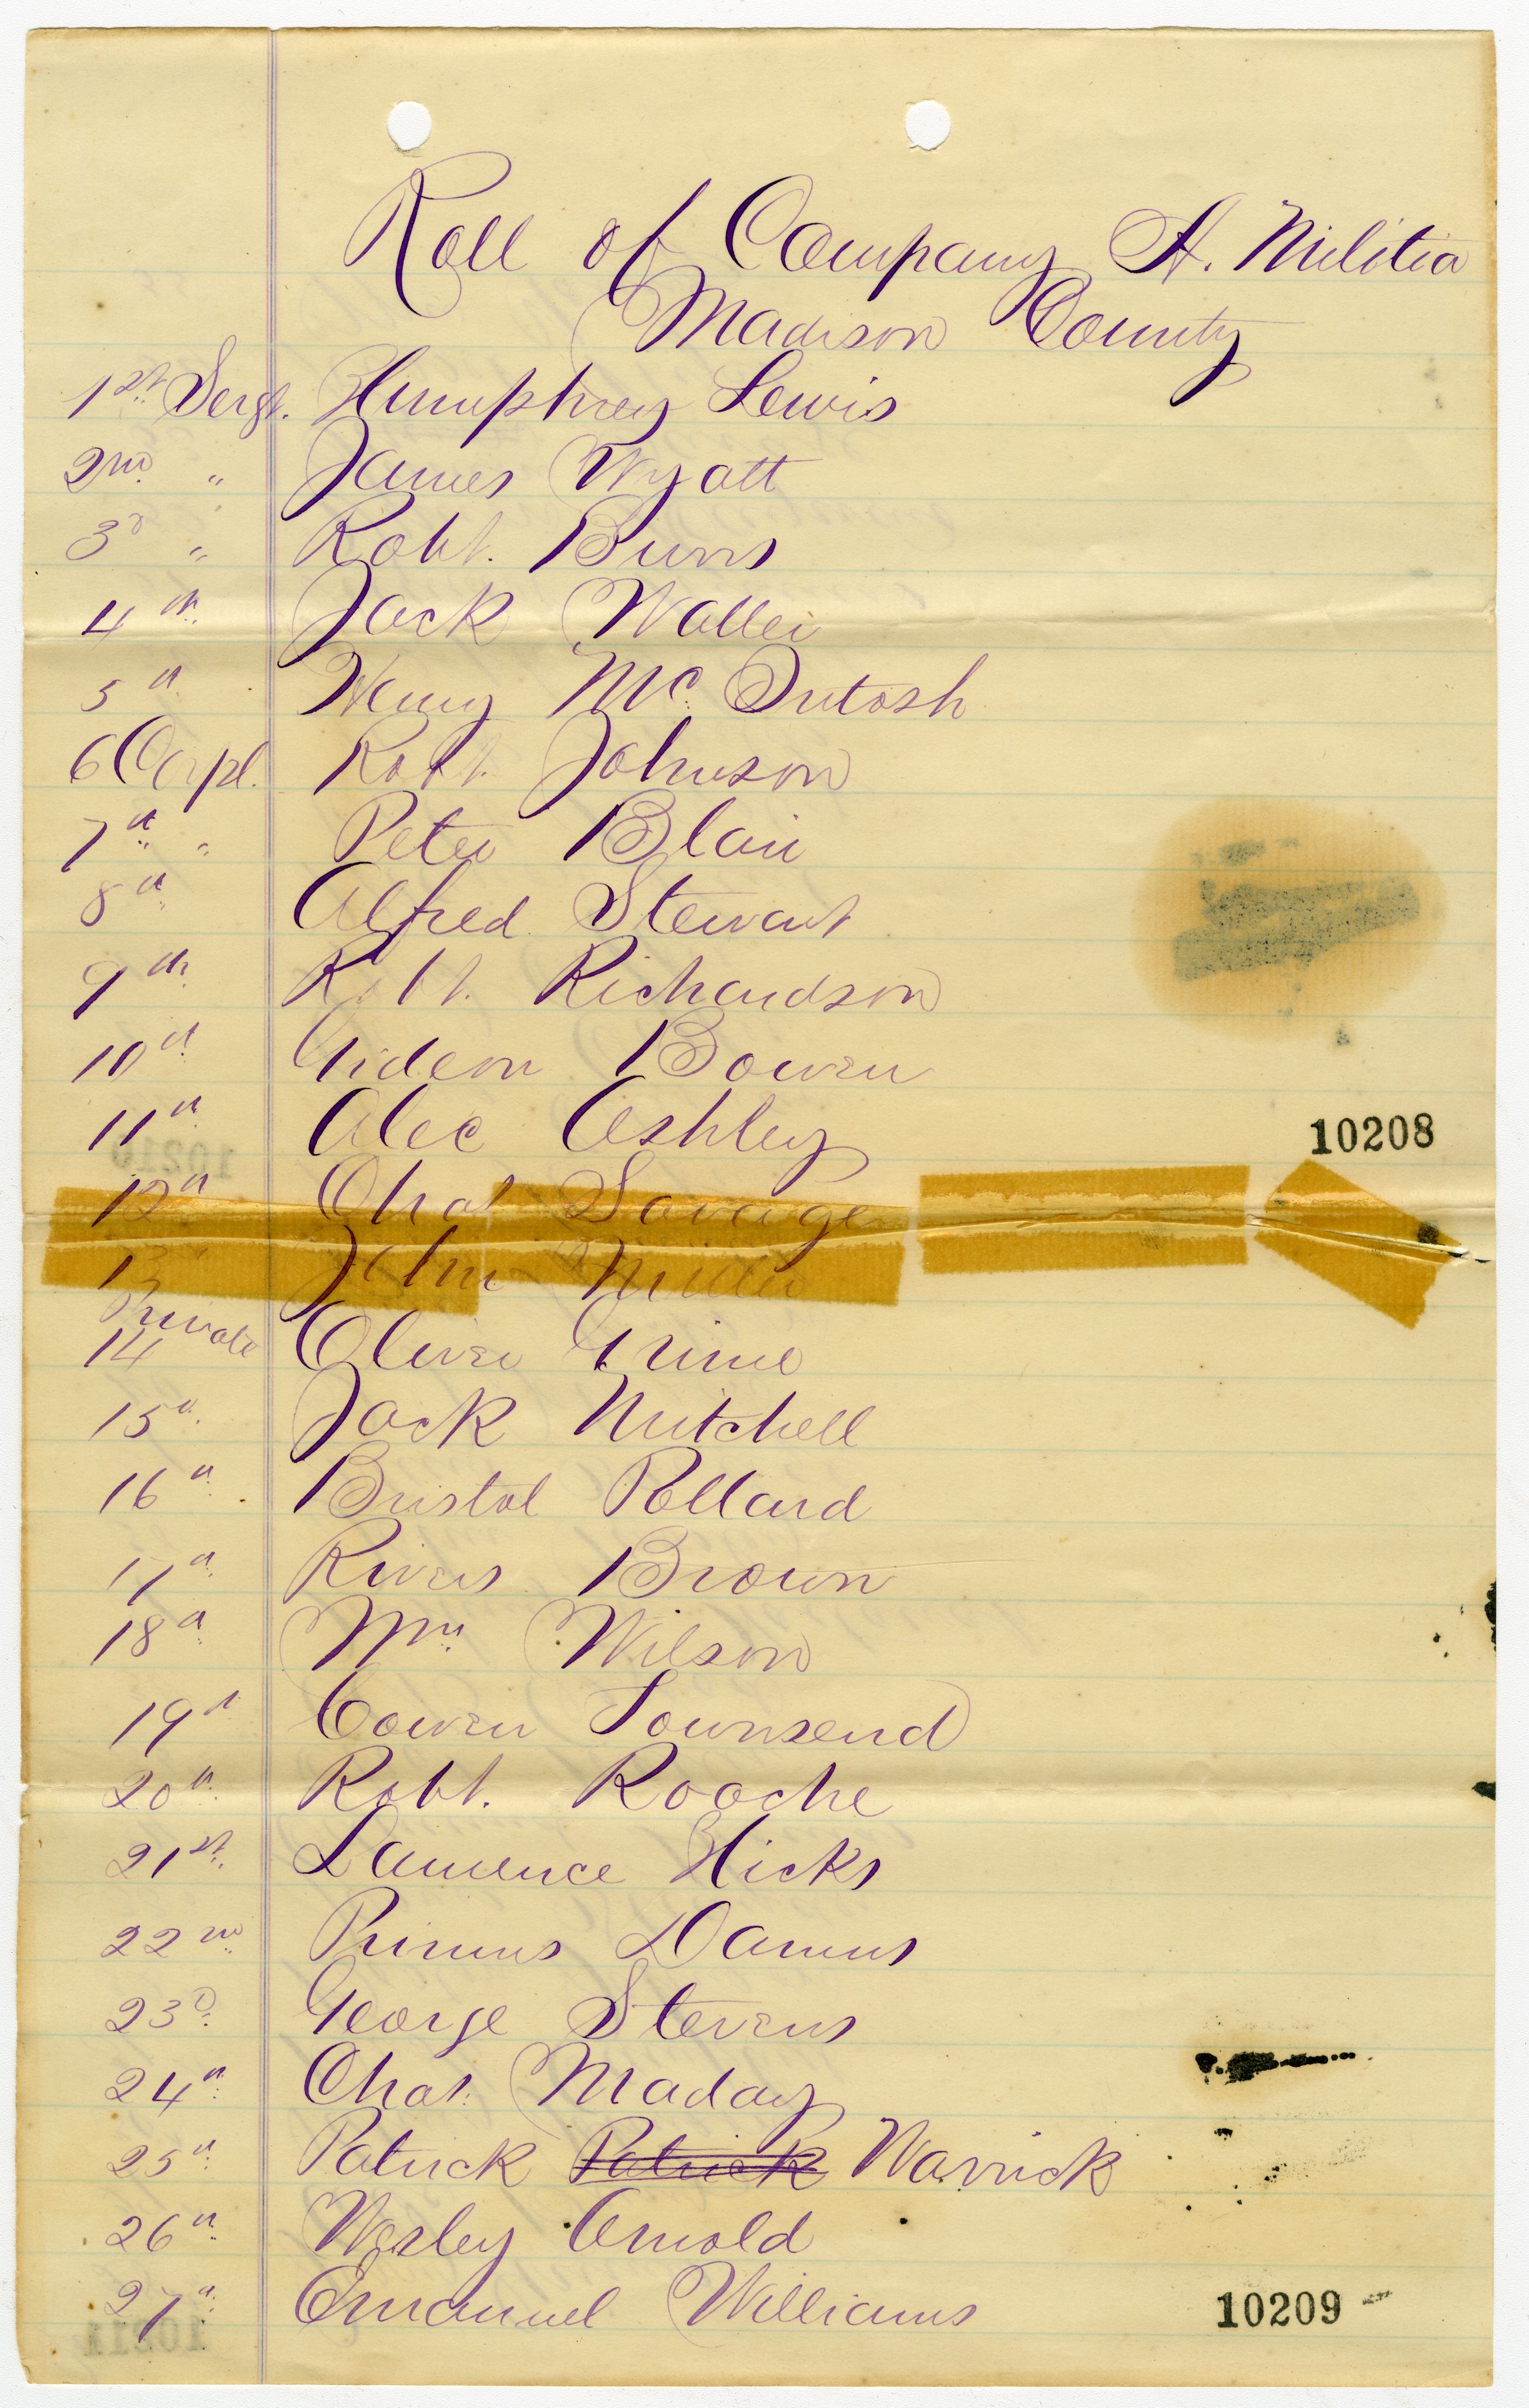 Roll of Company A. Militia
Madison County
1st. Sergt. Humphrey Lewis
2nd. " James Wyatt
3d " Robt. Burns
4th. Jack Waller
5th Henry McIntosh
6 Corpl. Robt. Johnson
7th " Peter Blair
8th Alfred Stewart
9th. Robt. Richardson
10th Gideon Bowen
11th Alec Ashley
10208
12th Chas Savage
13 John Miller
Private
14 Oliver Grime
15th. Jack Mitchell
16th Bristol Pollard
17th Rivers Brown
18th Wm. Wilson
19th Cowen Townsend
20th Robt. Roache
21st. Laurence Hicks
22nd Primus Damus
23d. George Stevens
24th. Chas. Maday
25th Patrick Patrick Warrick
26th Wesley Arnold
27th Emanuel Williams
10209